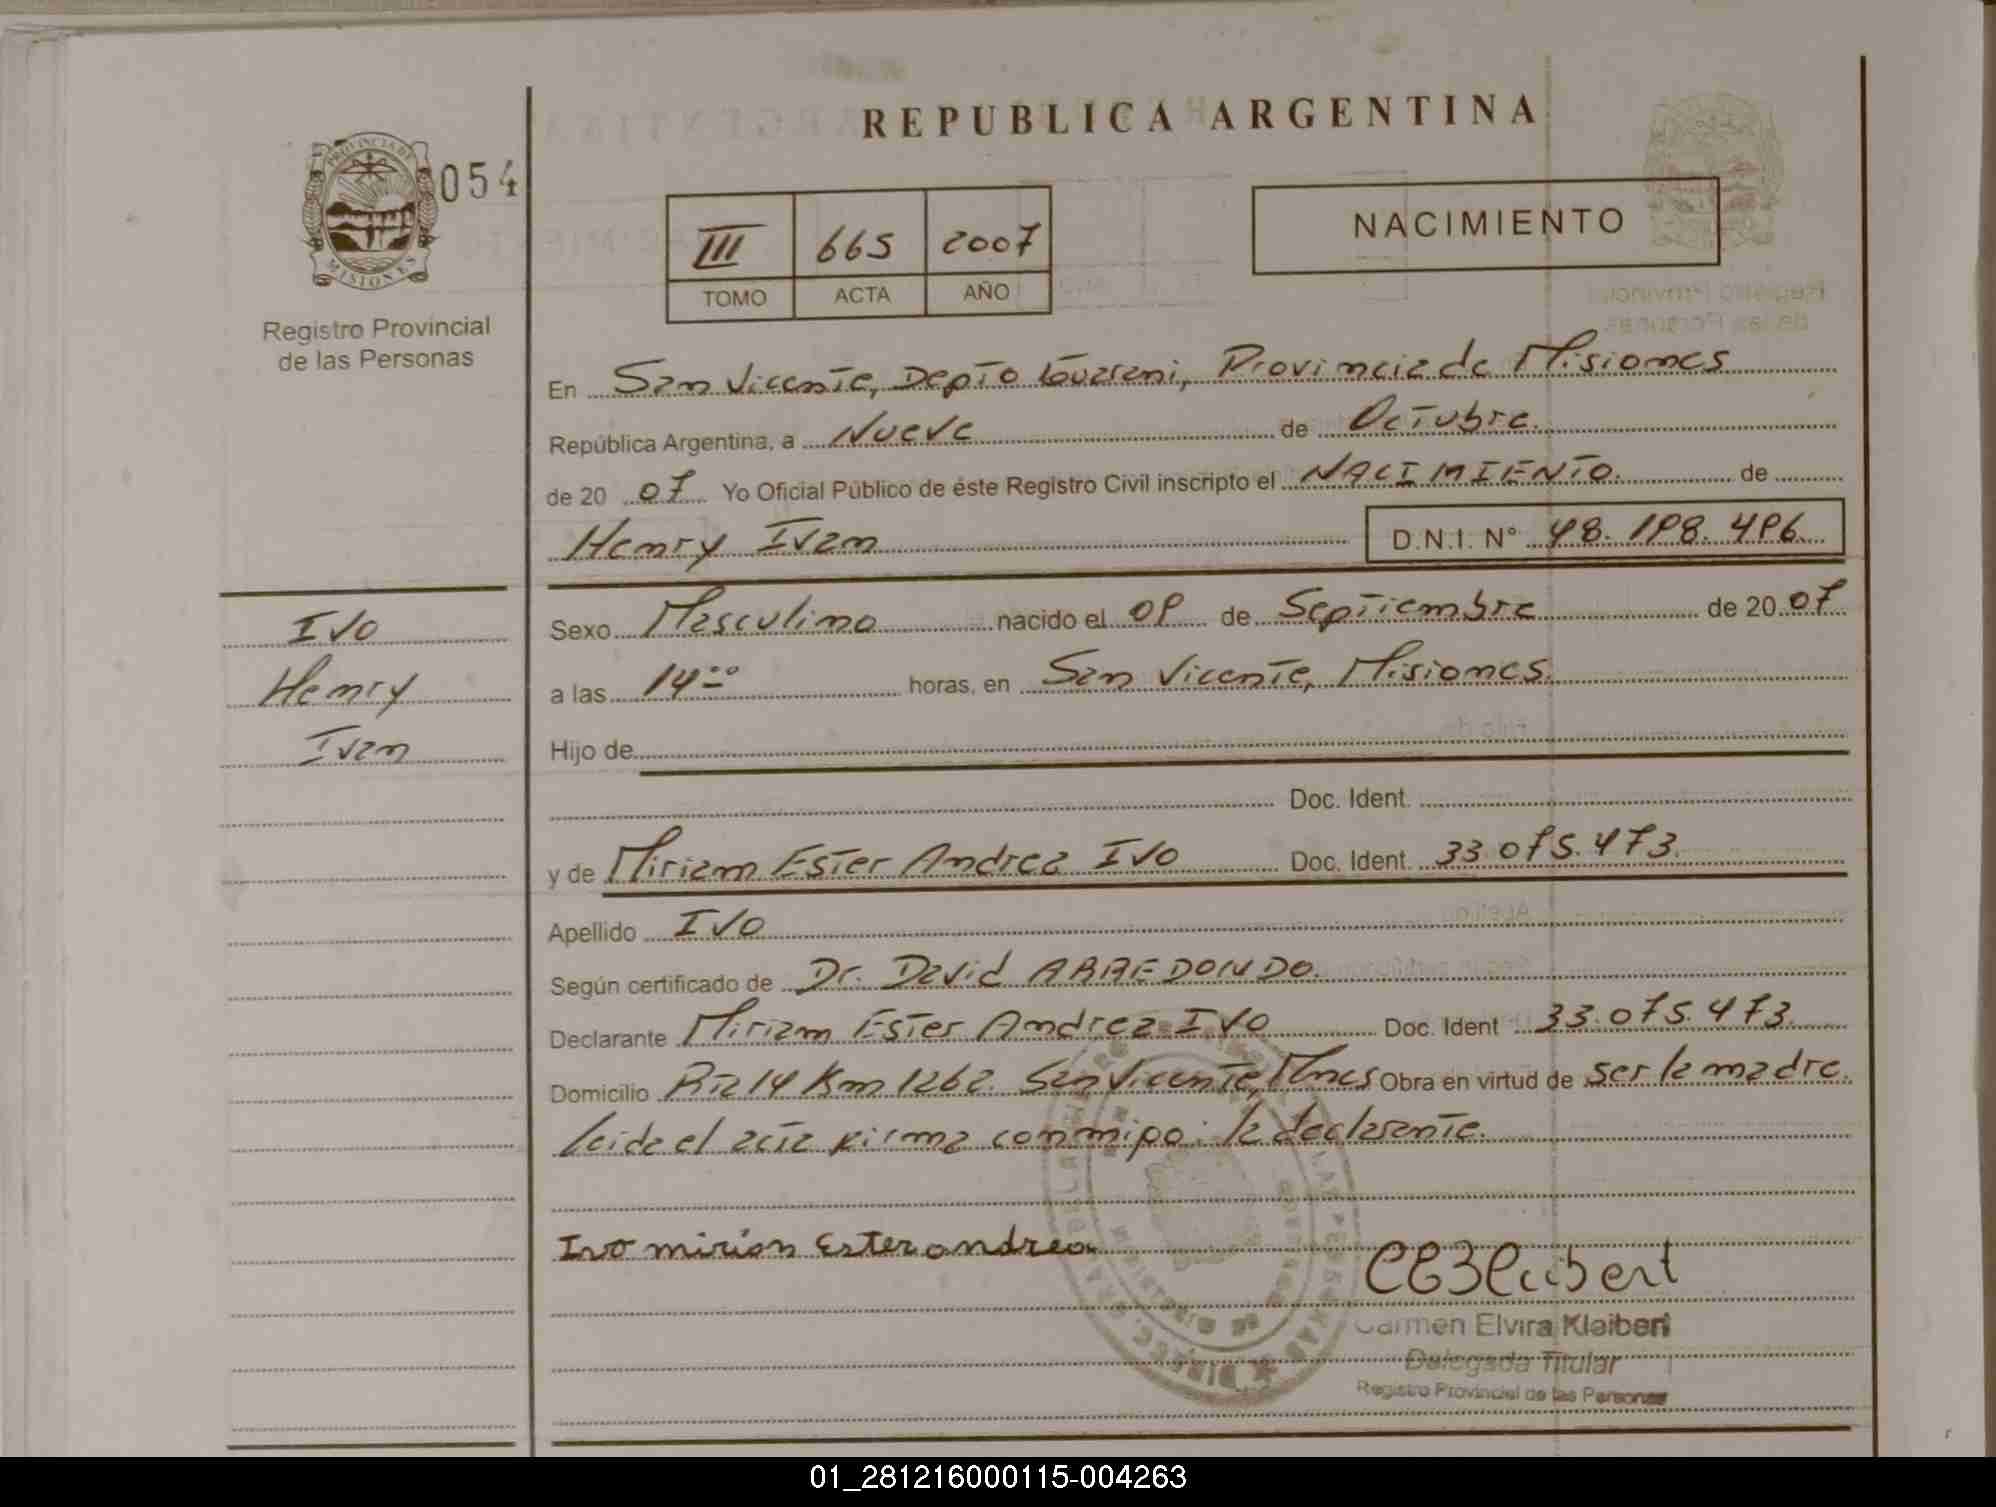 REPUBLICA ARGENTINA
PROVINCIA DE
MISIONES
054
Registro Provincial
de las Personas
III 665 2007
TOMO ACTA AÑO
NACIMIENTO
En San Vicente, Depto Guarani, Provincia de Misiones
República Argentina, a Nueve de Octubre
de 20 07 Yo Oficial Público de éste Registro Civil inscripto el NACIMIENTO de
Henry Ivan D.N.I. Nº 48.198.496
Ivo
Henry
Ivan
Sexo Masculino nacido el 09 de Septiembre de 20 07
a las 14 00 horas, en San Vicente, Misiones.
Hijo de
Doc. Ident.
y de Miriam Ester Andrea Ivo Doc. Ident. 33.075.473
Apellido Ivo
Según certificado de Dr. David ARREDONDO.
Declarante Miriam Ester Andrea Ivo Doc. Ident 33.075.473
Domicilio Rta 14 Km 1262. San Vicente, Mnes Obra en virtud de ser la madre.
leida el acta firma conmigo: la declarante.
Ivo mirian Ester andrea
Carmen Elvira Kleibert
Delegada Titular
Registro Provincial de las Personas
01_281216000115-004263